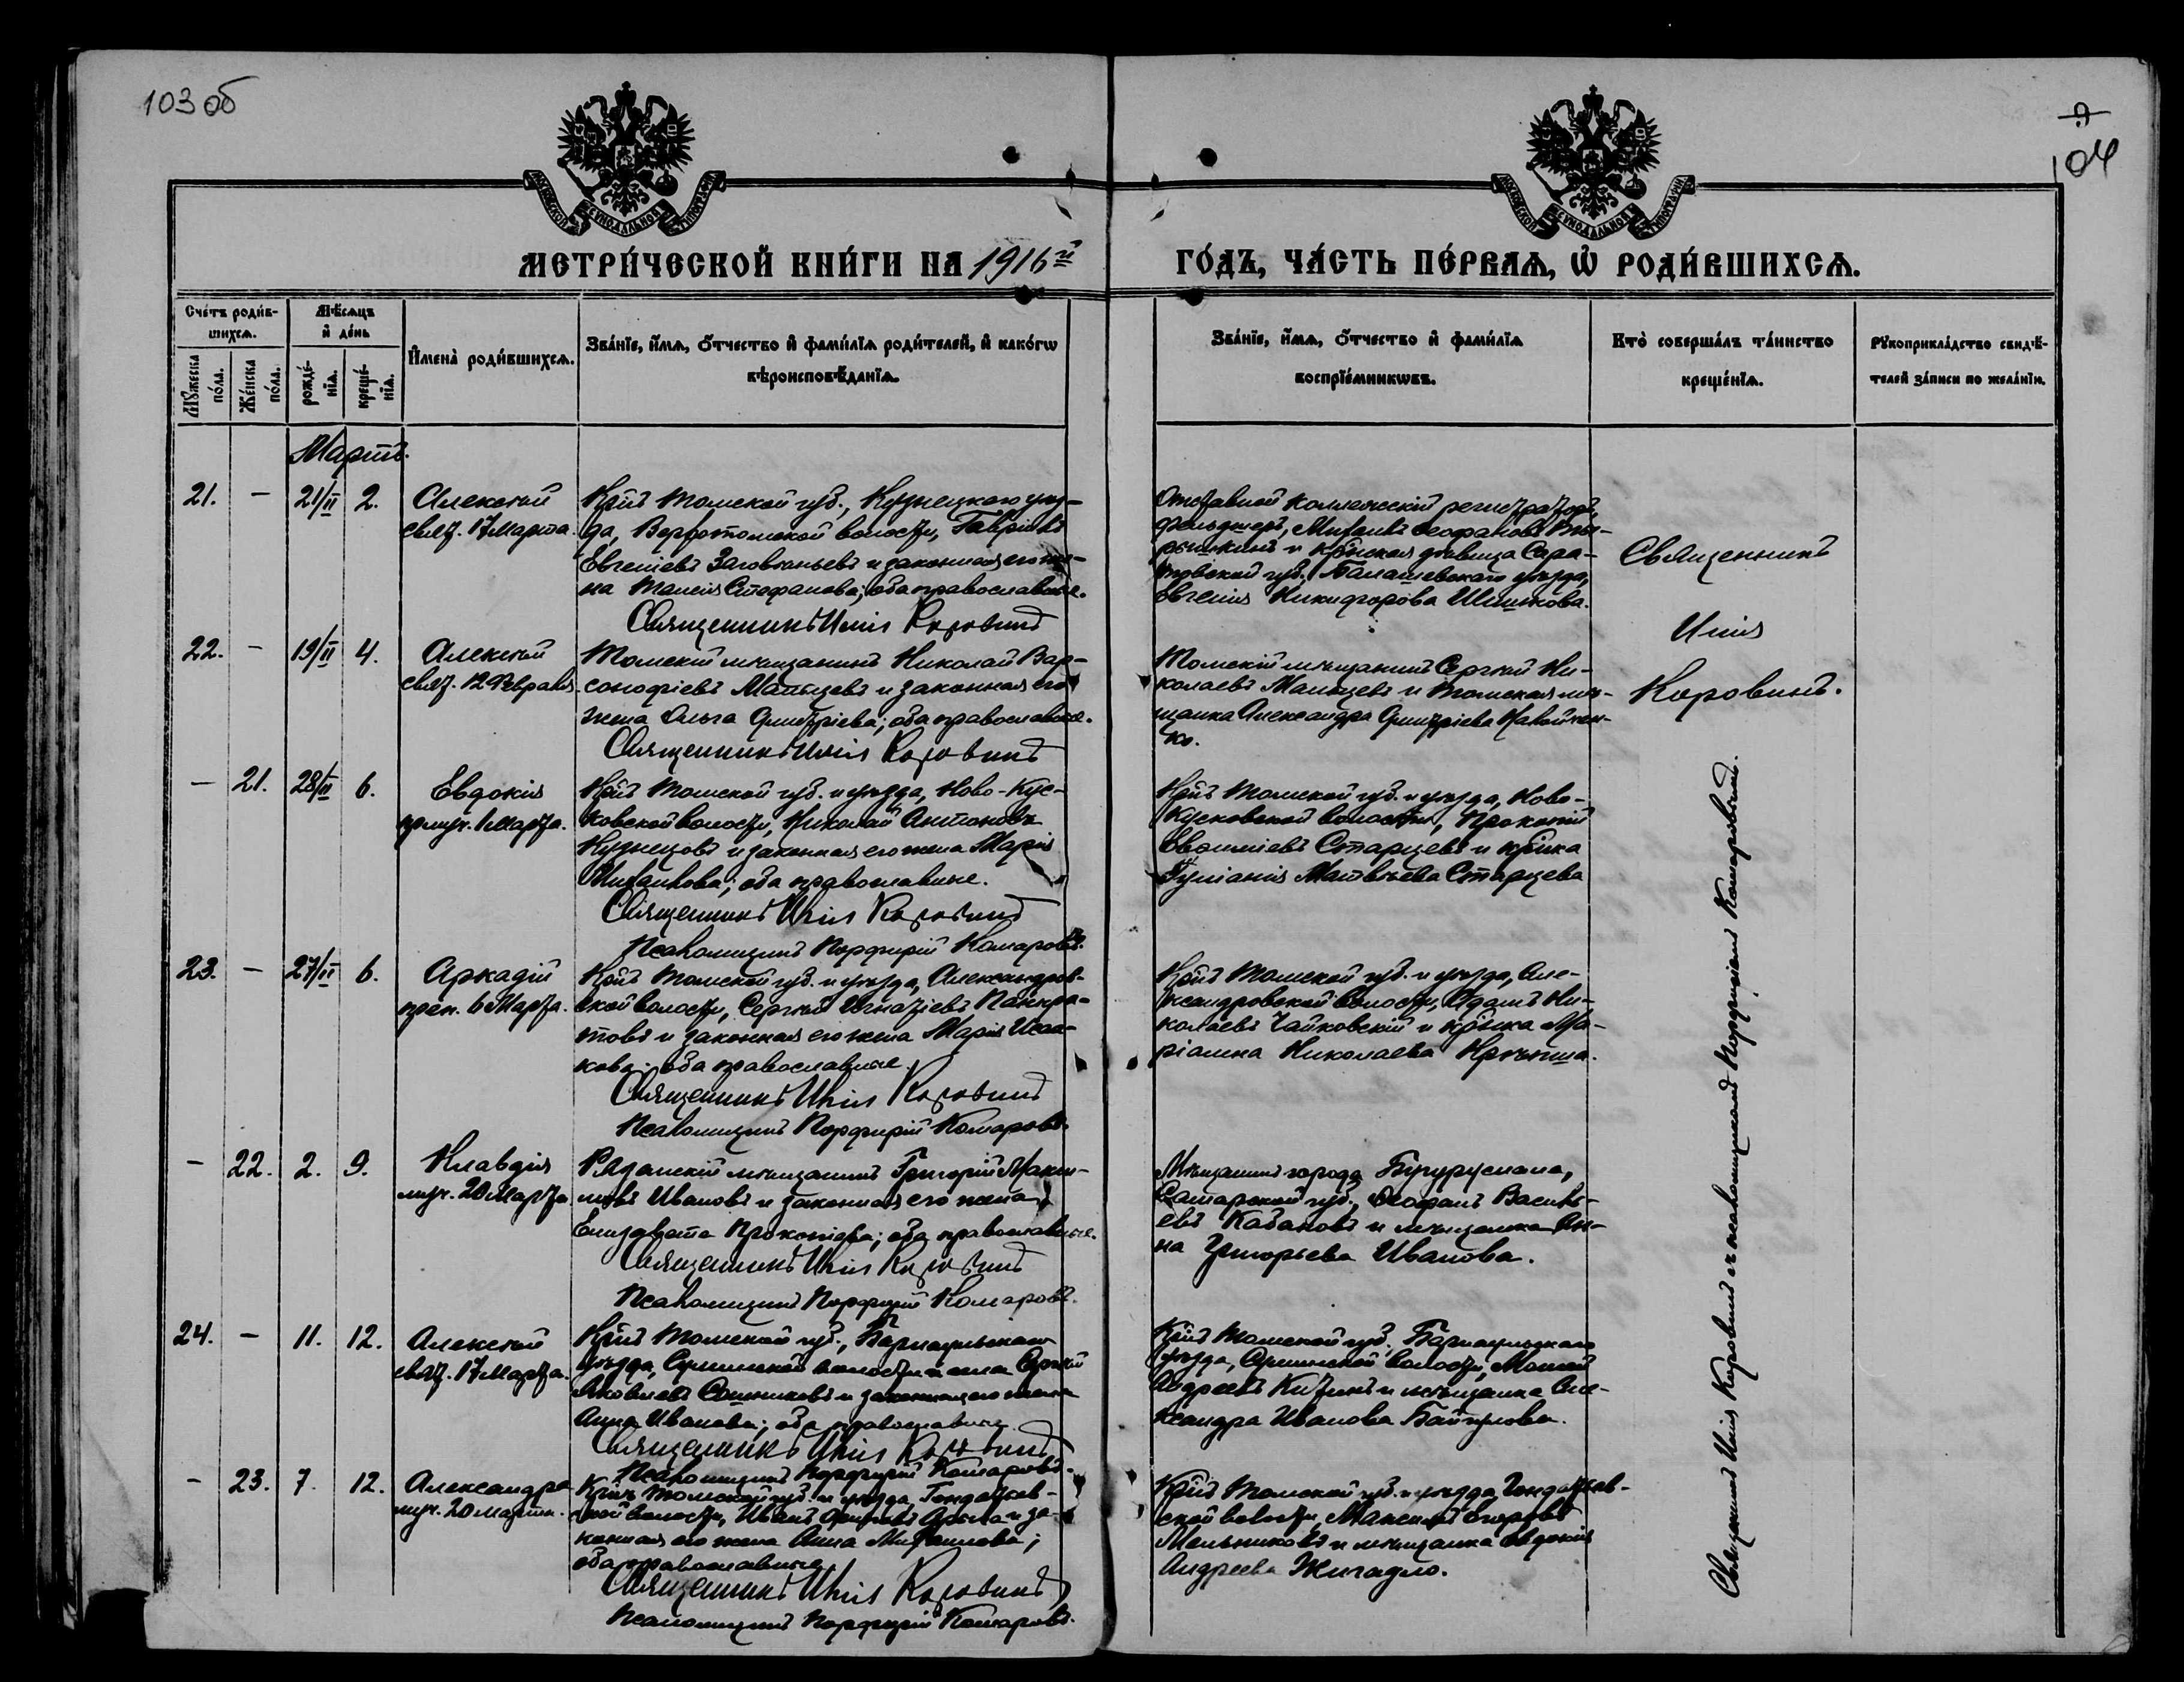 103 об
9
104
МОСКОВСКОЙ СУНОДАЛЬНОЙ ТИПОГРАФІИ
МОСКОВСКОЙ СУНОДАЛЬНОЙ ТИПОГРАФІИ
МЕТРИ́ЧЕСКОЙ КНИ́ГИ НА 1916й
ГО́ДЪ, ЧА́СТЬ ПЕ́РВАѦ, Ѡ҆ РОДИ́ВШИХСѦ.
Сче́тъ роди́в-
шихсѧ.
Мꙋ́жеска
по́ла.
Же́нска
по́ла.
Мѣ́сѧцъ
и҆ де́нь
рожде́-
нїѧ.
креще́-
нїѧ.
И҆мена̀ роди́вшихсѧ.
Зва́нїе, и҆́мѧ, ѻ҆́тчество и҆ фами́лїѧ роди́телей, и҆ како́гѡ
вѣроисповѣ́данїѧ.
Зва́нїе, и҆́мѧ, ѻ҆́тчество и҆ фами́лїѧ
воспрїе́мникѡвъ.
Кто̀ соверша́лъ та́инство
креще́нїѧ.
Рꙋкоприкла́дство свидѣ́-
телей за́писи по жела́нїю.
Мартъ.
21. — 21/II 2. Алексѣй
свят. 17 Марта.
Кр-нъ Томской губ., Кузнецкаго уѣз-
да, Верхотомской волости, Гавріилъ
Евгеніевъ и законная его же-
на Таисія Стефанова; оба православные.
Священникъ Инна Коровинъ
Отставной коллежскій регистраторъ,
фельдшеръ, Михаилъ Ѳеофановъ
и кр-нская дѣвица Сара-
товской губ., Балашевскаго уѣзда,
Евгенія Никифорова Шишкова.
Священникъ
Инна
Коровинъ.
22. — 19/II 4. Алексѣй
свят. 12 Февраля.
Томскій мѣщанинъ Николай Вар-
сонофіевъ Мальцевъ и законная его
жена Ольга Димитріева; оба православные.
Священникъ Инна Коровинъ
Томскій мѣщанинъ Сергѣй Ни-
колаевъ Мальцевъ и Томская мѣ-
щанка Александра Димитріева
ко.
— 21. 28/II 6. Евдокія
прмуч. 1 Марта.
Кр-нъ Томской губ. и уѣзда, Ново-Кус-
ковской волости, Николай Антоновъ
Кузнецовъ и законная его жена Марія
Михаилова; оба православные.
Священникъ Инна Коровинъ
Псаломщикъ Порфирій Комаровъ.
Кр-нъ Томской губ. и уѣзда, Ново-
Кусковской волости, Прокопій
Старцевъ и кр-нка
Іуліанія Матвѣева Старцева
23. — 27/II 6. Аркадій
преп. 6 Марта.
Кр-нъ Томской губ. и уѣзда, Александров-
ской волости, Сергѣй Игнатіевъ Панкра-
товъ и законная его жена Марія Исаа-
кова; оба православные.
Священникъ Инна Коровинъ
Псаломщикъ Порфирій Комаровъ.
Кр-нъ Томской губ. и уѣзда, Але-
ксандровской волости, Адамъ Ни-
колаевъ Чайковскій и кр-нка Ма-
ріанна Николаева
— 22. 2. 9. Клавдія
муч. 20 Марта.
Рязанскій мѣщанинъ Григорій Макси-
мовъ Ивановъ и законная его жена
Елизавета Прокопіева; оба православные.
Священникъ Инна Коровинъ
Псаломщикъ Порфирій Комаровъ.
Мѣщанинъ города Бугуруслана,
Самарской губ., Ѳеофанъ Василь-
евъ Кабановъ и мѣщанка Ан-
на Григорьева Иванова.
24. — 11. 12. Алексѣй
свят. 17 Марта.
Кр-нъ Томской губ., Барнаульскаго
уѣзда, волости и села Сергѣй
Яковлевъ и законная его жена
Анна Иванова; оба православные
Священникъ Инна Коровинъ
Псаломщикъ Порфирій Комаровъ.
Кр-нъ Томской губ., Барнаульскаго
уѣзда, волости, Моисей
Андреевъ и мѣщанка Але-
ксандра Иванова
— 23. 7. 12. Александра
муч. 20 марта.
Кр-нъ Томской губ. и уѣзда, Гондатьев-
ской волости, Иванъ и за-
конная его жена Анна Михаилова;
оба православные.
Священникъ Инна Коровинъ
Псаломщикъ Порфирій Комаровъ.
Кр-нъ Томской губ. и уѣзда, Гондатьев-
ской волости, Максимъ Егоровъ
Мельниковъ и мѣщанка Евдокія
Андреева Жигадло.
Священникъ Инна Коровинъ съ псаломщикомъ Порфиріемъ Комаровымъ.